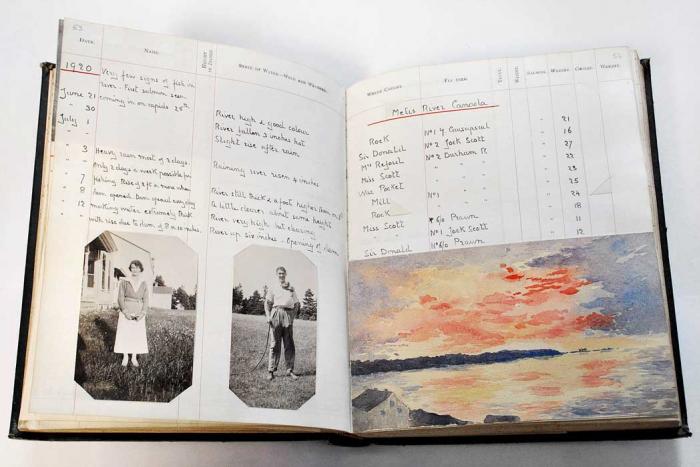 53
DATE.
NAME.
HEIGHT IN INCHES
STATE OF WATER—WIND AND WEATHER.
1920
Very few signs of fish in
river. First salmon seen
coming in on rapids 20th
June 21
" 30
July 1
River high & good colour
River fallen 3 inches hat
Slight rise after rain
" 3
Heavy rain most of 2 days.
Only 2 days a week possible for
fishing. Rise of 2 ft or more when
dam opened. Dam opened every day
making water extremely thick
with rise due to dam of 8 to 10 inches.
" 7
" 8
" 12
Raining river risen 4 inches
River still thick & a foot higher
A little clearer about same height
River very high but clearing
River up six inches - Opening of dam
WHERE CAUGHT.
FLY USED.
TROUT.
WEIGHT.
SALMON.
WEIGHT.
GRILSE.
WEIGHT.
Metis River Canada
Rock
Sir Donald
Miss Scott
Mill
Rock
Miss Scott
Sir Donald
Nº 2 Jock Scott
Nº 2 Durham R.
Nº 1
6/0 Prawn
Nº 1 Jock Scott
Nº 6/0 Prawn
21
16
27
22
23
25
24
18
11
12